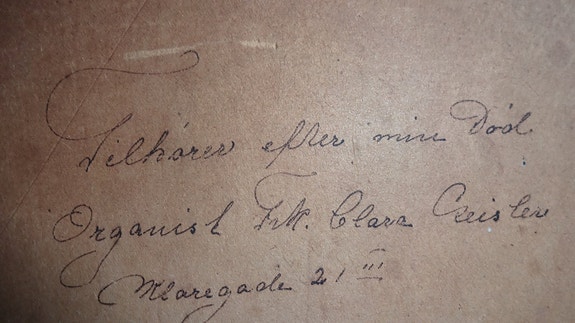 Tilhører efter min Død
Organist Frk. Clara Geisler
Klaregade 21 III